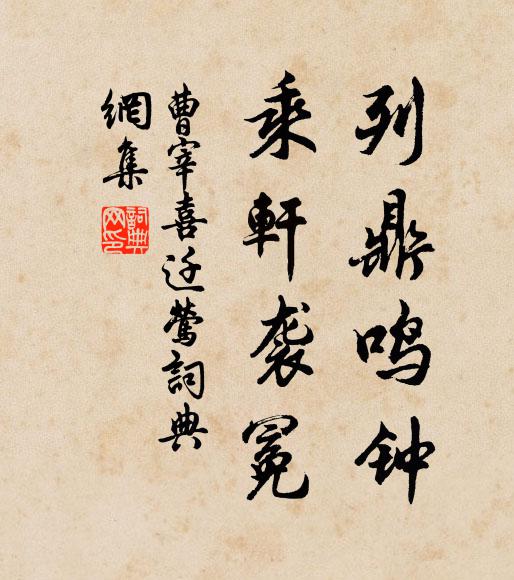 列鼎鸣钟
乘軒袭冕
曹宰喜迁莺詞典
網集
詞典网印